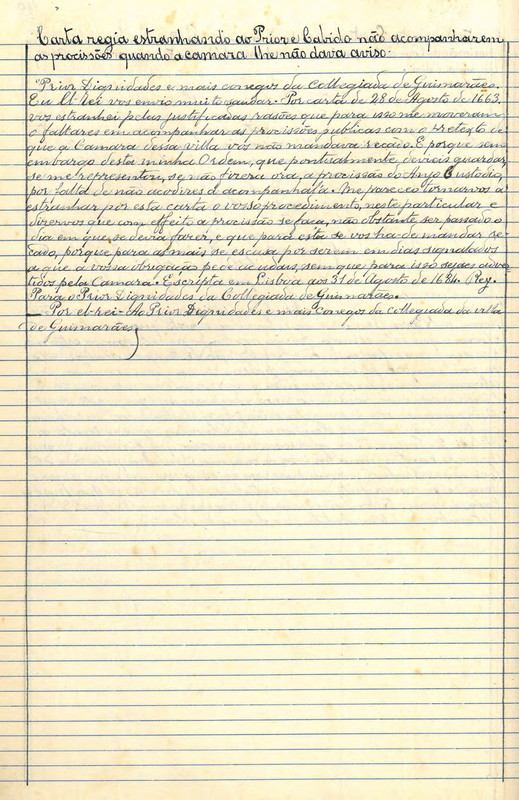 Carta regia estranhando ao Prior e Cabido não acompanharem
as procissões quando a camara lhe não dava aviso.
"Prior Dignidades e mais conegos da Collegiada de Guimarães.
Eu El-rei vos envio muito saudar. Por carta de 28 de Agosto de 1663.
vos estranhei pelas justificadas rasões que para isso me moveram
o faltares em acompanhar as procissões publicas com o pretexto de
que a Camara dessa villa vos não mandava recado. E porque sem
embargo desta minha Ordem, que pontualmente, devieis guardar,
se me representou, se não fizera ora, a procissão do Anjo Custodio,
por falta de não acodires a acompanhal-a. Me pareceo tornarvos a
estranhar por esta carta o vosso procedimento, neste particular e
dizervos que com effeito a procissão se faça, não obstante ser passado o
dia em que se devia fazer, e que para esta se vos ha-de mandar re-
cado, porque para as mais se escusa por serem em dias signalados
a que a vossa obrigação pede acudais, sem que para isso sejaes adver-
tidos pela Camara. Escripta em Lisboa aos 31 de Agosto de 1684. Rey.
Para o Prior Dignidades da Collegiada de Guimarães.
— Por el-rei - Ao Prior Dignidades e mais conegos da collegiada da villa
de Guimarães